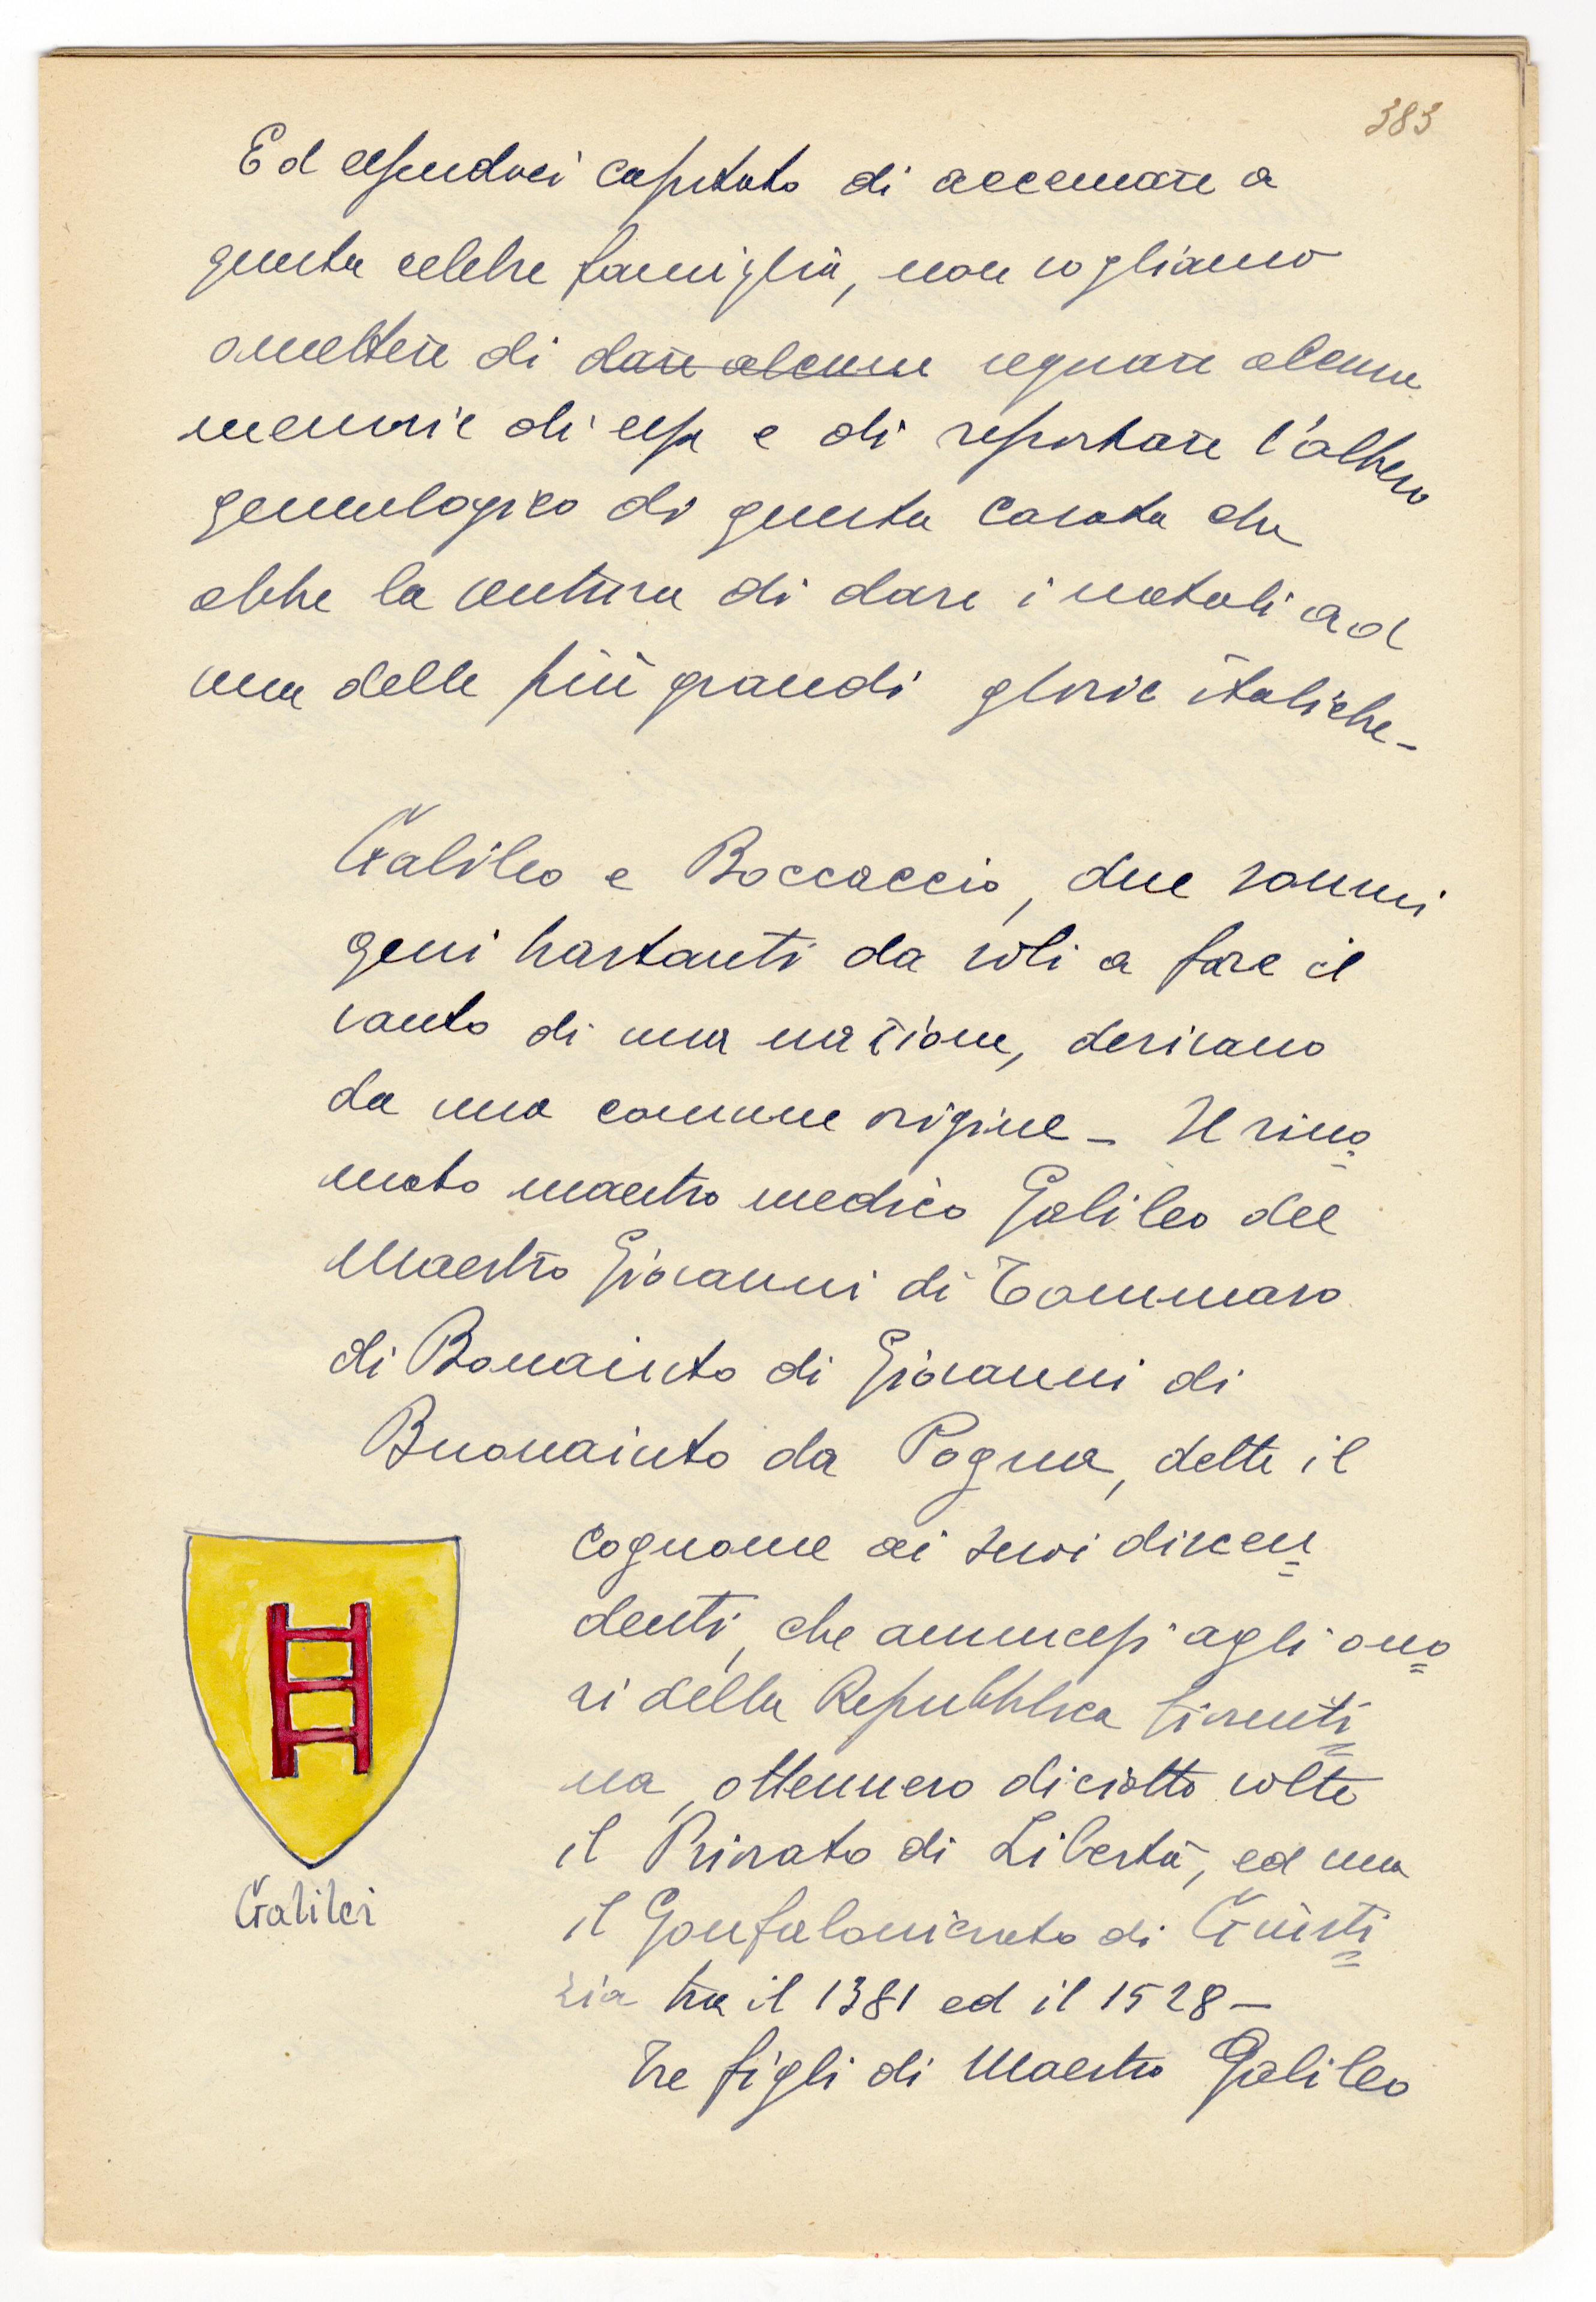 383
Ed essendoci capitato di accennare a
questa celebre famiglia, non vogliamo
omettere di dare alcune segnare alcune
memorie di essa e di riportare l'albero
genealogico di questa casata che
ebbe la ventura di dare i natali ad
una delle più grandi glorie italiche_
Galileo e Boccaccio, due sommi
geni bastanti da soli a fare il
vanto di una nazione, derivano
da una comune origine _ Il rino=
mato maestro medico Galileo del
Maestro Giovanni di Tommaso
di Bonaiuto di Giovanni di
Buonaiuto da Pogna, dette il
cognome ai suoi discen=
denti, che ammessi agli ono=
ri della Repubblica fiorenti=
na, ottennero diciotto volte
il Priorato di Libertà, ed una
il Gonfalonierato di Giusti=
zia tra il 1381 ed il 1528 _
Tre figli di Maestro Galileo
Galilei